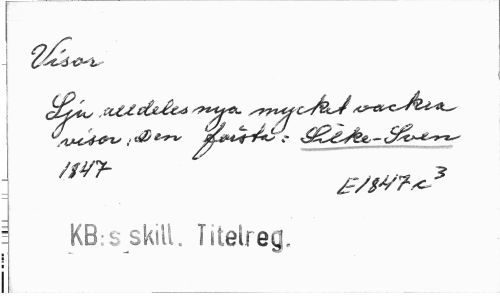 Visor
Sju alldeles nya mycket vackra
visor. Den första: Silke-Sven
1847
E1847c³
KB:s skill. Titelreg.